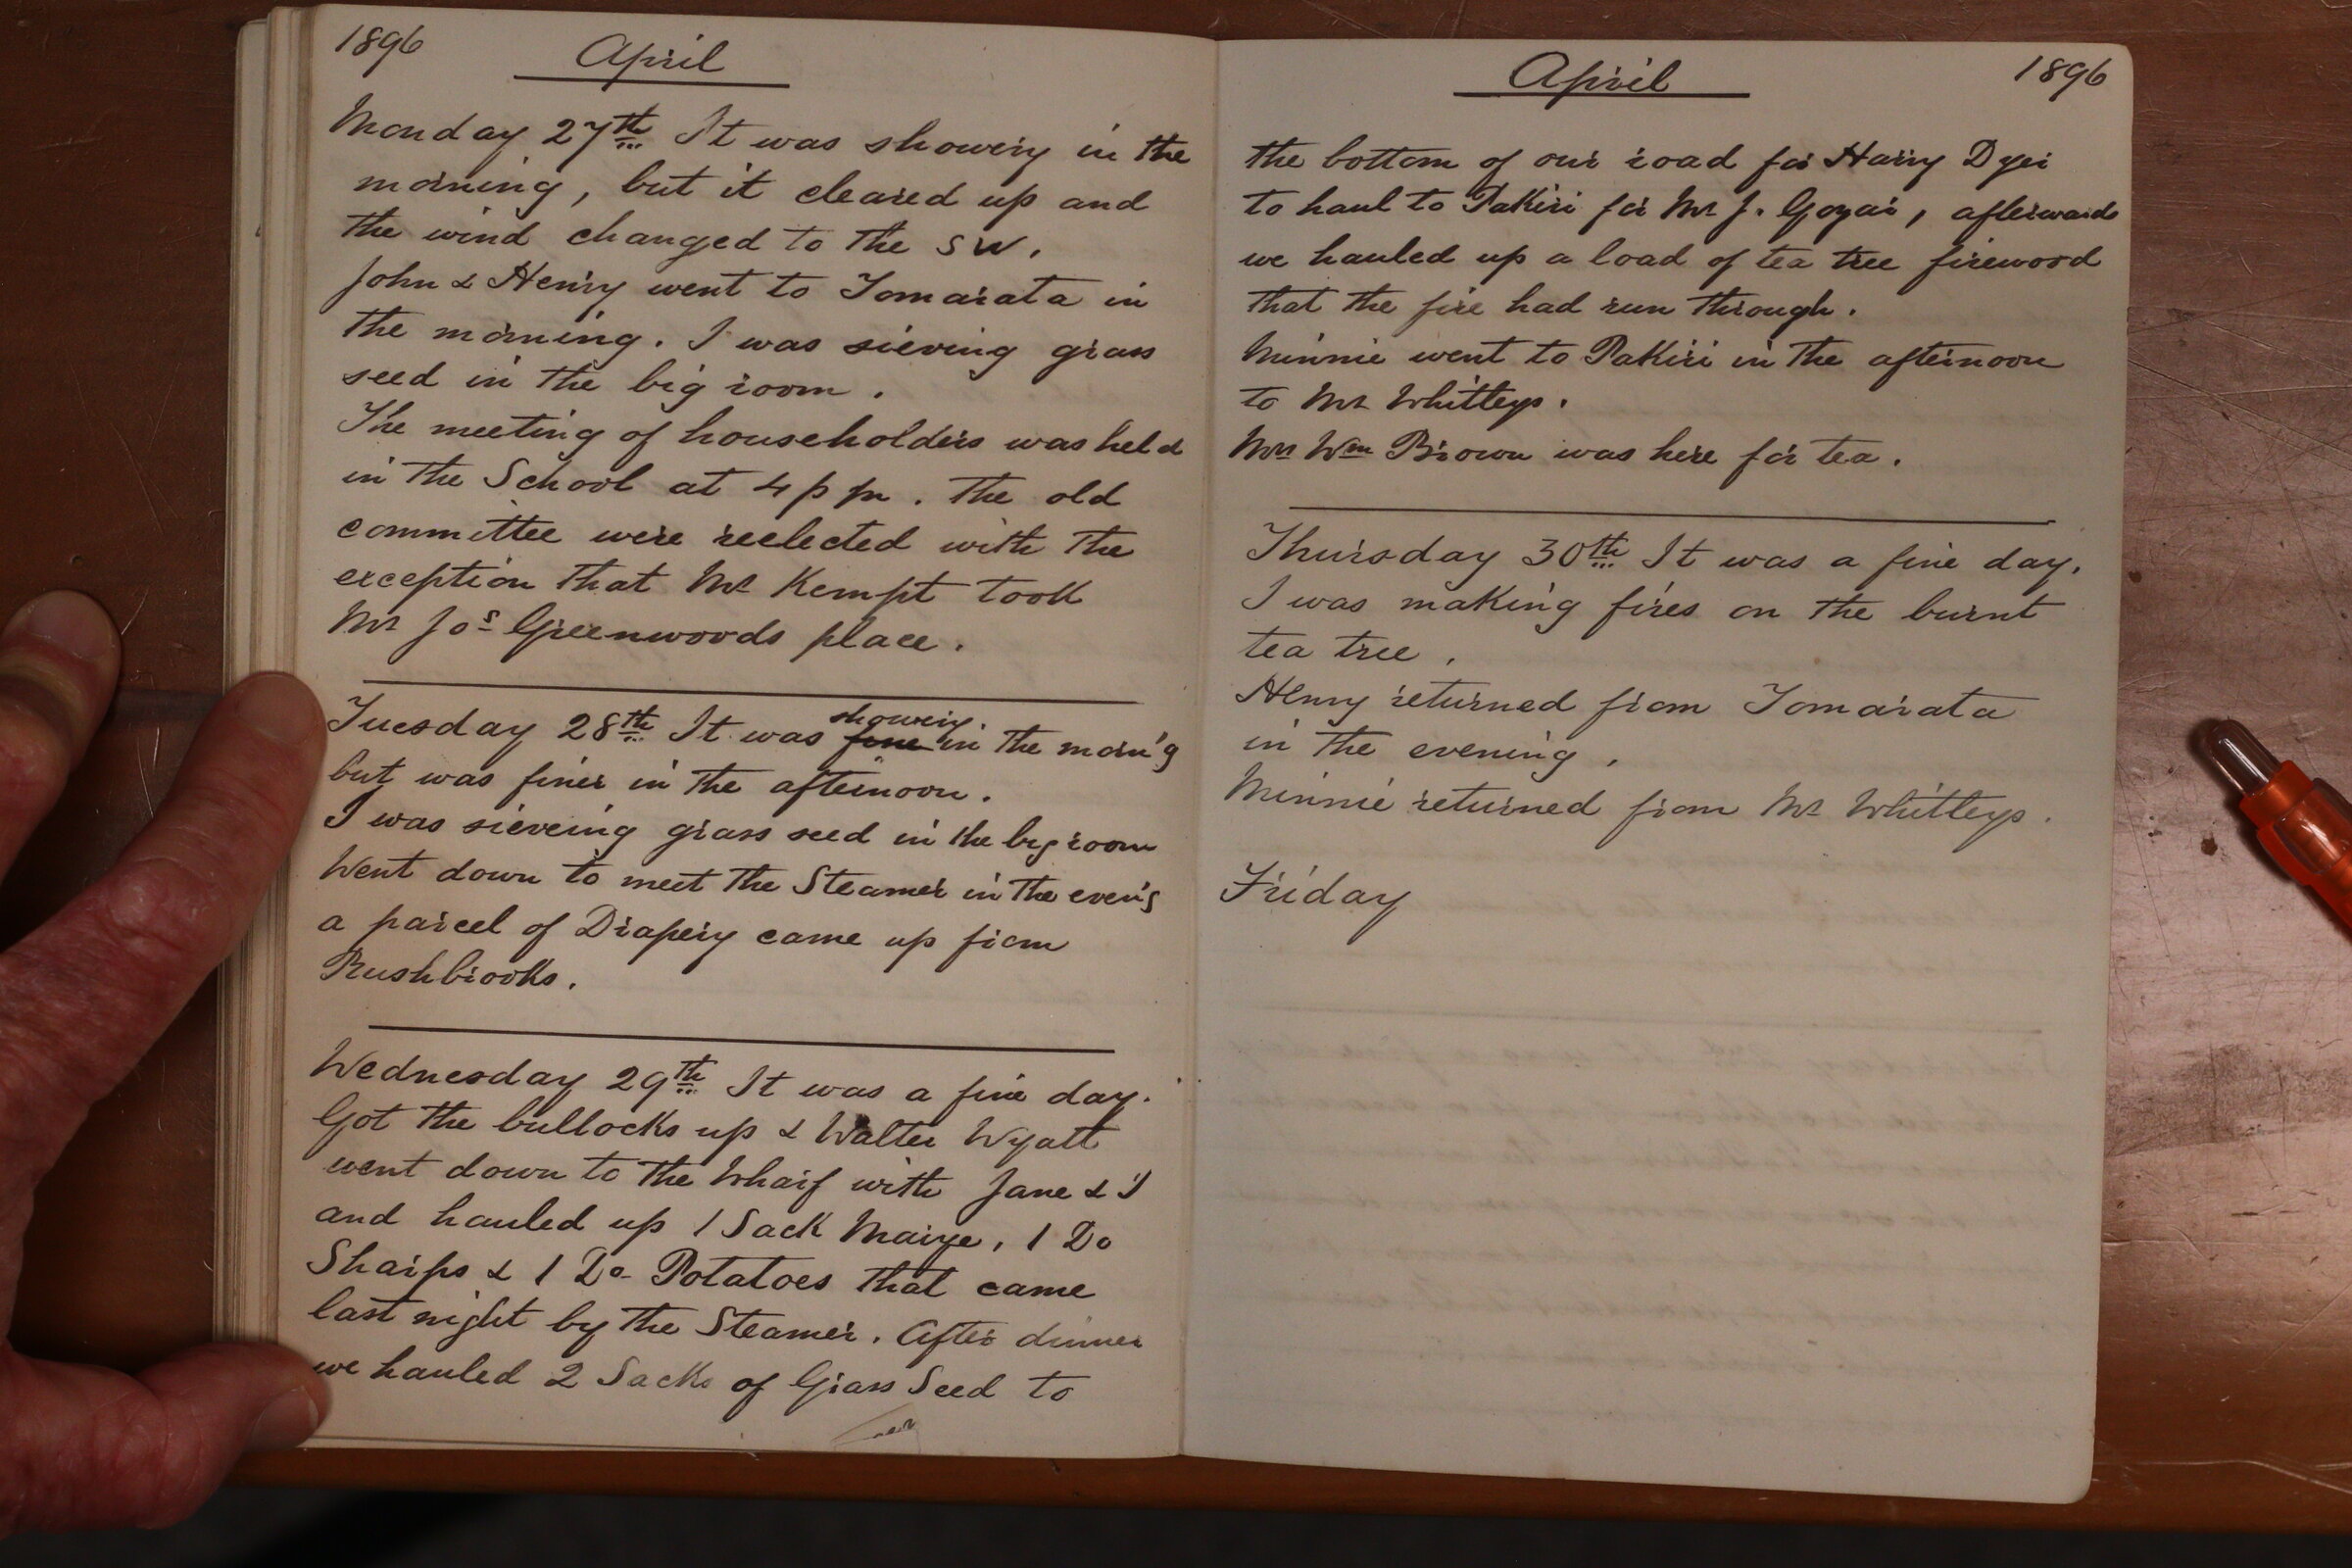 1896 April
Monday 27th It was showery in the
morning, but it cleared up and
the wind changed to the SW.
John & Henry went to Tomarata in
the morning. I was sieving grass
seed in the big room.
The meeting of householders was held
in the School at 4 p m. The old
committee were reelected with the
exception that Mr Kempt took
Mr Jos Greenwoods place.
Tuesday 28th It was fine showery in the morn'g
but was finer in the afternoon.
I was sieveing grass seed in the big room
Went down to meet the Steamer in the even'g
a parcel of Drapery came up from
Rushbrooks.
Wednesday 29th It was a fine day.
Got the bullocks up & Walter Wyatt
went down to the Wharf with Jane & I
and hauled up 1 Sack Maize, 1 Do
Sharps & 1 Do Potatoes that came
last night by the Steamer. After dinner
we hauled 2 Sacks of Grass Seed to
April 1896
the bottom of our road for Harry Dyer
to haul to Pakiri for Mr J. Gozar, afterwards
we hauled up a load of tea tree firewood
that the fire had run through.
Minnie went to Pakiri in the afternoon
to Mr Whitleys.
Mrs Wm Brown was here for tea.
Thursday 30th It was a fine day.
I was making fires on the burnt
tea tree.
Henry returned from Tomarata
in the evening.
Minnie returned from Mr Whitleys.
Friday